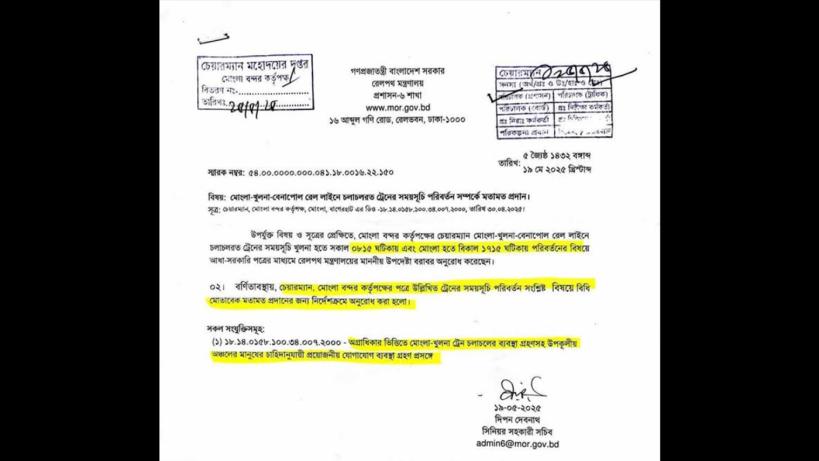 চেয়ারম্যান মহোদয়ের দপ্তর
মোংলা বন্দর কর্তৃপক্ষ
বিতরণ নং
তারিখ
গণপ্রজাতন্ত্রী বাংলাদেশ সরকার
রেলপথ মন্ত্রণালয়
প্রশাসন-৬ শাখা
www.mor.gov.bd
১৬ আব্দুল গণি রোড, রেলভবন, ঢাকা-১০০০
চেয়ারম্যান
পরিচালক (প্রশাসন) পরিচালক (ট্রাফিক)
পরিচালক (বোর্ড)
পরিকল্পনা প্রধান
স্মারক নম্বর: ৫৪.০০.০০০০.০০০.০৪১.১৮.০০১৬.২২.১৫০
তারিখ: ৫ জ্যৈষ্ঠ ১৪৩২ বঙ্গাব্দ
১৯ মে ২০২৫ খ্রিস্টাব্দ
বিষয়: মোংলা-খুলনা-বেনাপোল রেল লাইনে চলাচলরত ট্রেনের সময়সূচি পরিবর্তন সম্পর্কে মতামত প্রদান।
সূত্র: চেয়ারম্যান, মোংলা বন্দর কর্তৃপক্ষ, মোংলা, বাগেরহাট এর ডিও -১৮.১৪.০১৫৮.১০০.৩৪.০০৭.২০০০, তারিখ ৩০.০৪.২০২৫।
উপর্যুক্ত বিষয় ও সূত্রের প্রেক্ষিতে, মোংলা বন্দর কর্তৃপক্ষের চেয়ারম্যান মোংলা-খুলনা-বেনাপোল রেল লাইনে
চলাচলরত ট্রেনের সময়সূচি খুলনা হতে সকাল ০৮১৫ ঘটিকায় এবং মোংলা হতে বিকাল ১৭১৫ ঘটিকায় পরিবর্তনের বিষয়ে
আধা-সরকারি পত্রের মাধ্যমে রেলপথ মন্ত্রণালয়ের মাননীয় উপদেষ্টা বরাবর অনুরোধ করেছেন।
০২। বর্ণিতাবস্থায়, চেয়ারম্যান, মোংলা বন্দর কর্তৃপক্ষের পত্রে উল্লিখিত ট্রেনের সময়সূচি পরিবর্তন সংশ্লিষ্ট বিষয়ে বিধি
মোতাবেক মতামত প্রদানের জন্য নির্দেশক্রমে অনুরোধ করা হলো।
সকল সংযুক্তিসমূহ:
(১) ১৮.১৪.০১৫৮.১০০.৩৪.০০৭.২০০০ - অগ্রাধিকার ভিত্তিতে মোংলা-খুলনা ট্রেন চলাচলের ব্যবস্থা গ্রহণসহ উপকূলীয়
অঞ্চলের মানুষের চাহিদানুযায়ী প্রয়োজনীয় যোগাযোগ ব্যবস্থা গ্রহণ প্রসঙ্গে
১৯-০৫-২০২৫
দিপন দেবনাথ
সিনিয়র সহকারী সচিব
admin6@mor.gov.bd